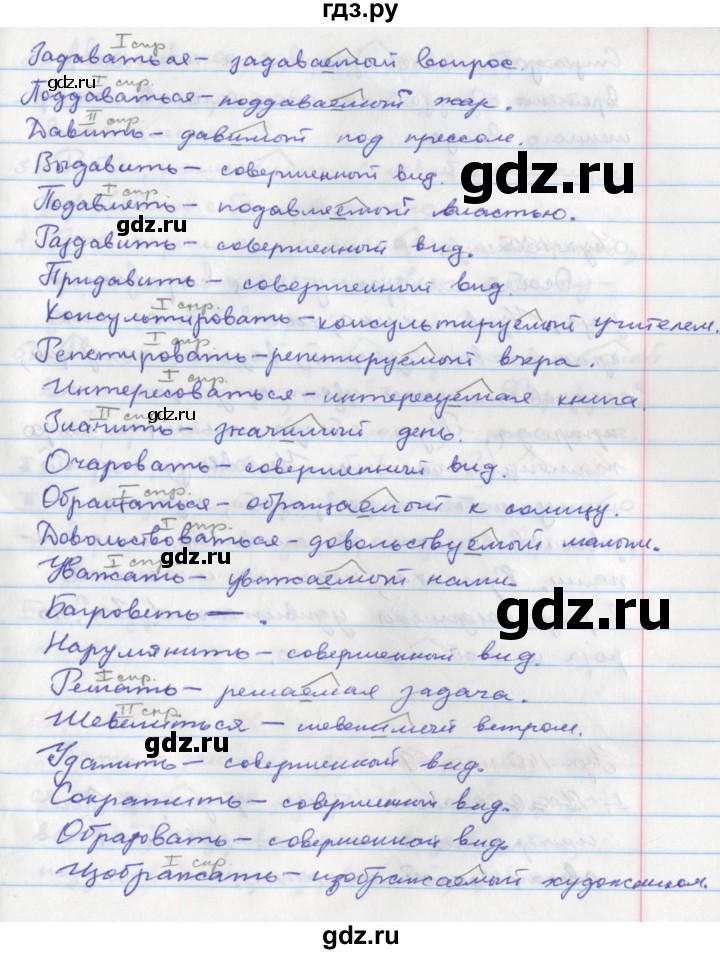 гдз.ру
I спр.
Задаваться – задаваемый вопрос.
gdz.ru
I спр.
Поддаваться – поддаваемый жар.
II спр.
Давить – давимый под прессом.
Выдавить – совершенный вид.
gdz.ru
I спр.
Подавлять – подавляемый властью.
gdz.ru
Раздавить – совершенный вид.
Придавить – совершенный вид.
I спр.
Консультировать – консультируемый учителем.
I спр.
Репетировать – репетируемый вчера.
gdz.ru
I спр.
Интересоваться – интересуемая книга.
gdz.ru
II спр.
Значить – значимый день.
Очаровать – совершенный вид.
I спр.
Обращаться – обращаемый к солнцу.
I спр.
Довольствоваться – довольствуемый малым.
gdz.ru
I спр.
Уважать – уважаемый нами.
gdz.ru
Багроветь — .
Нарумянить – совершенный вид.
I спр.
Решать – решаемая задача.
II спр.
Шевелиться – шевелимый ветром.
gdz.ru
Удалить – совершенной вид.
Сократить – совершенный вид.
Образовать – совершенной вид.
I спр.
Изображать – изображаемый художником.
gdz.ru
gdz.ru